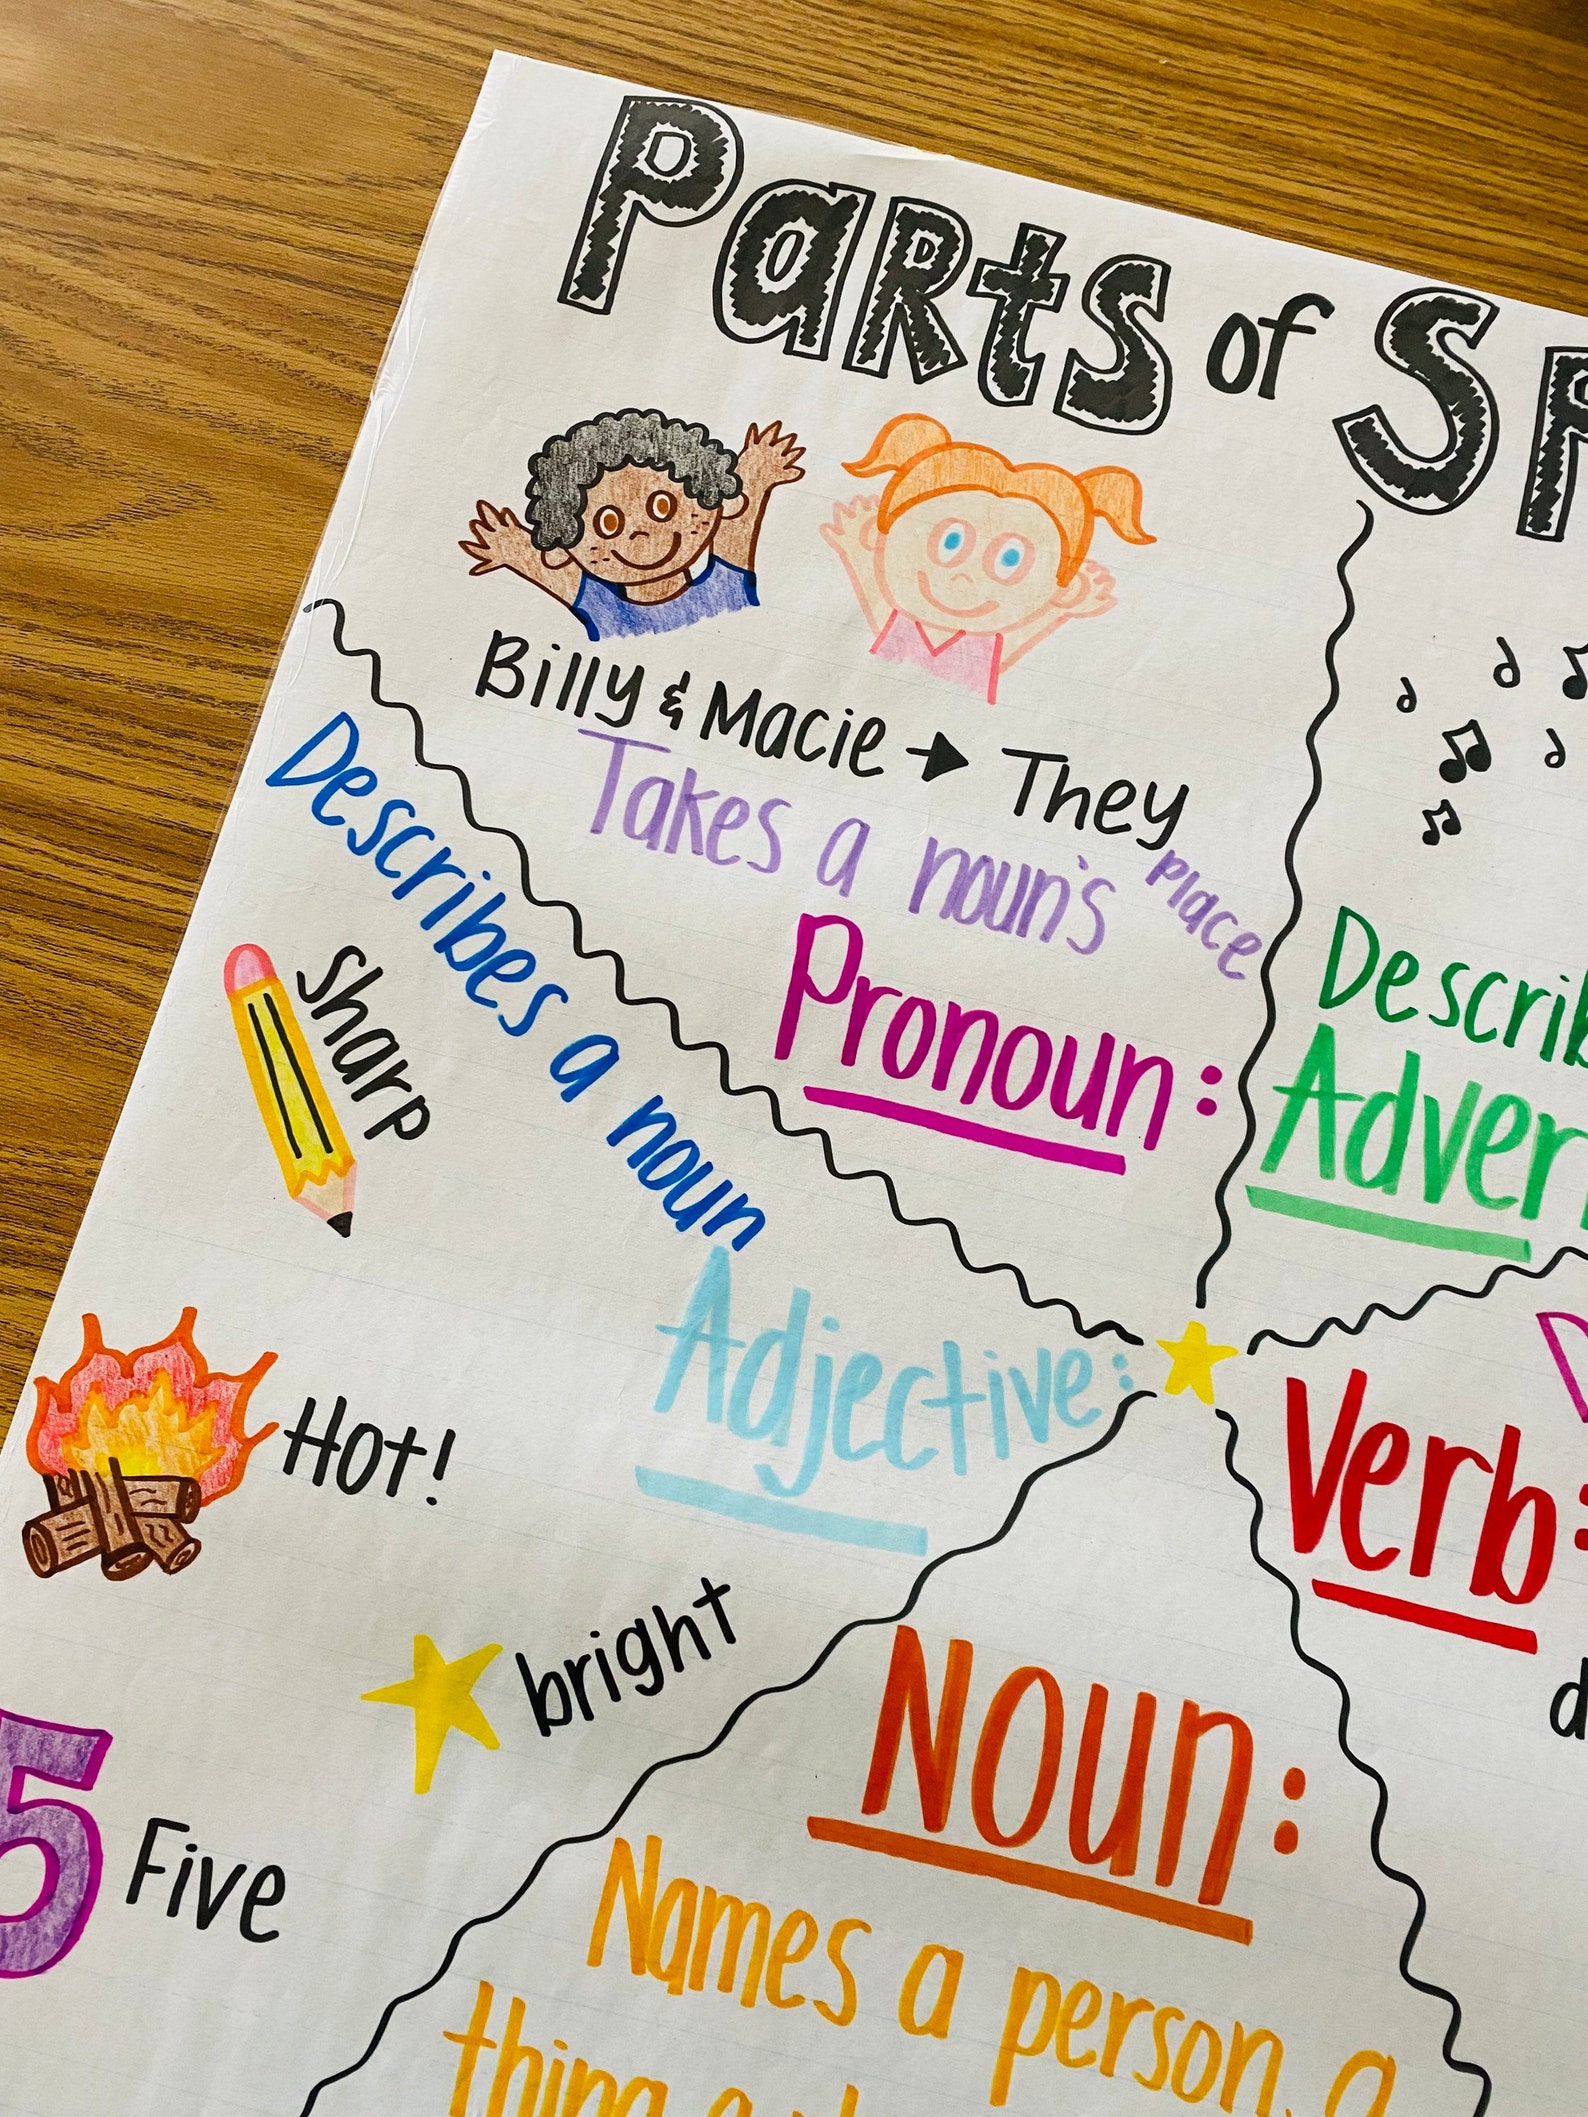 Parts of Sp
Billy & Macie → They
Takes a noun's place
Pronoun:
Describ
Adver
Describes a noun
Sharp
Adjective:
Hot!
bright
5 Five
Verb:
d
Noun:
Names a person, a
thing